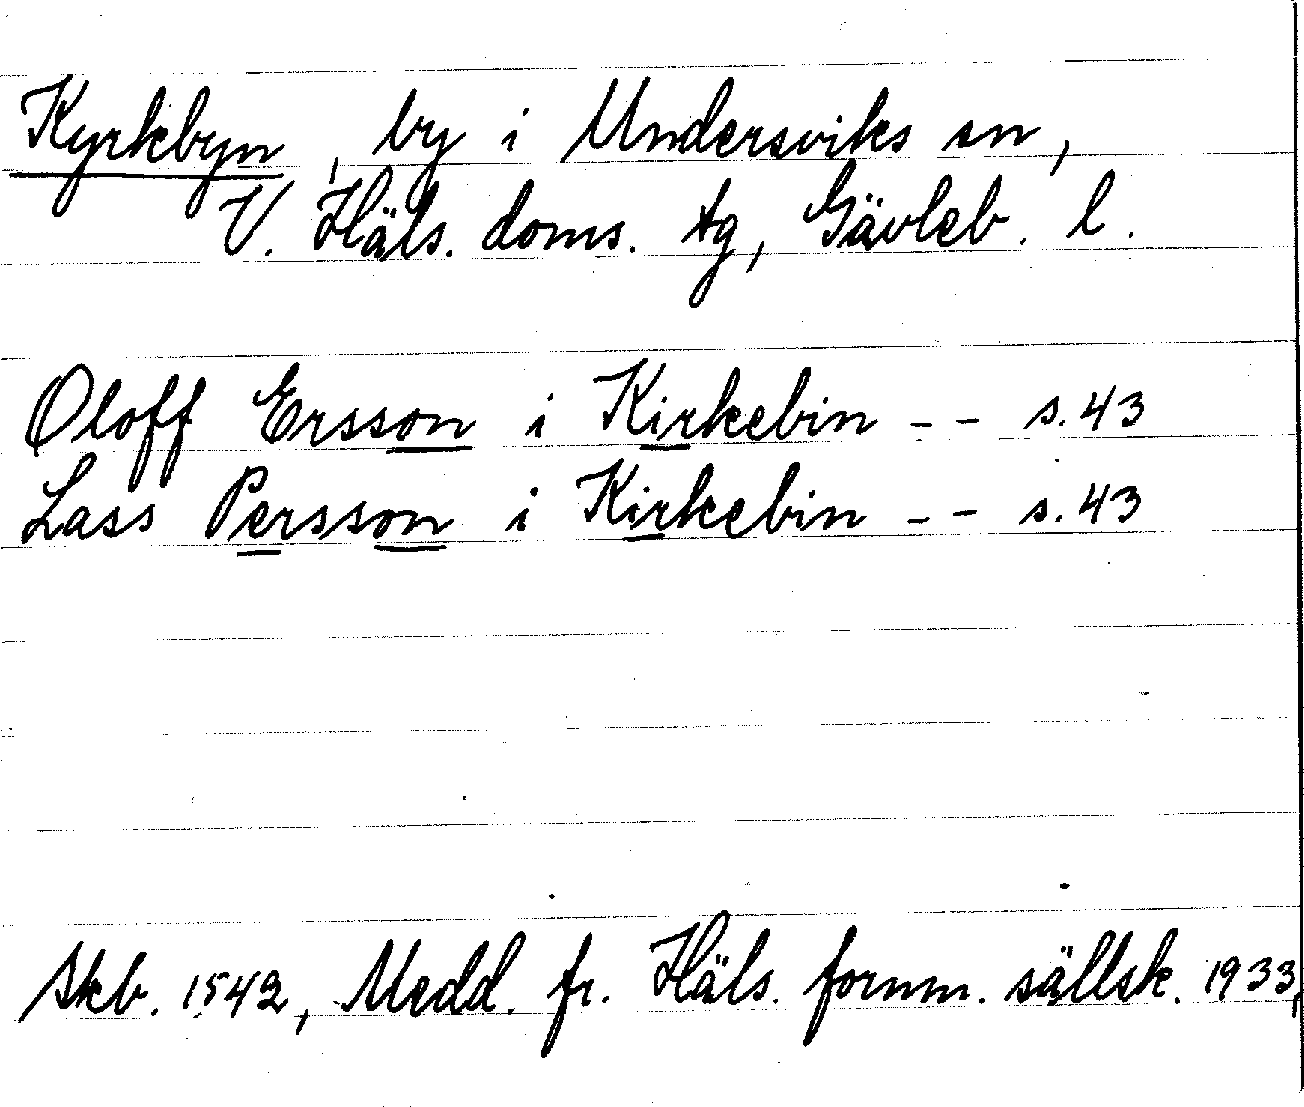 Kyrkbyn, by i Undersviks sn,
V. Häls. doms. tg, Gävleb. l.
Oloff Ersson i Kirkebin - - s. 43
Lass Persson i Kirkebin - - s. 43
Skb. 1542, Medd. fr. Häls. fornm. sällsk. 1933,